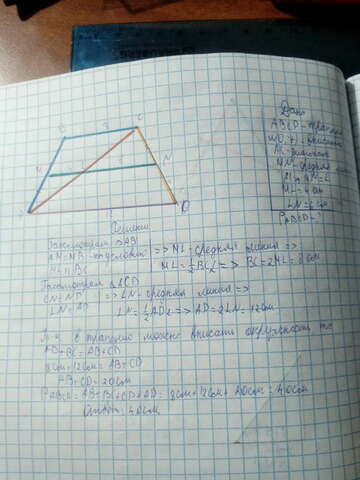 B
8
C
M
4
L
6
N
A
12
D
Дано
ABCD - трапеция
AC - диагональ
MN - средняя
ML = 4 см
LN = 6 см
P ABCD - ?
Решение
Рассмотрим △ABC
AM = MB => ML - средняя линия =>
ML || BC ML = 1/2 BC => BC = 2ML = 8 см
Рассмотрим △ACD
CN = ND => LN - средняя линия =>
LN || AD LN = 1/2 AD => AD = 2LN = 12 см
Т.к. в трапецию можно вписать окружность, то
AD + BC = AB + CD
8 см + 12 см = AB + CD
AB + CD = 20 см
P ABCD = AB + BC + CD + AD = 8 см + 12 см + 20 см = 40 см
Ответ: 40 см